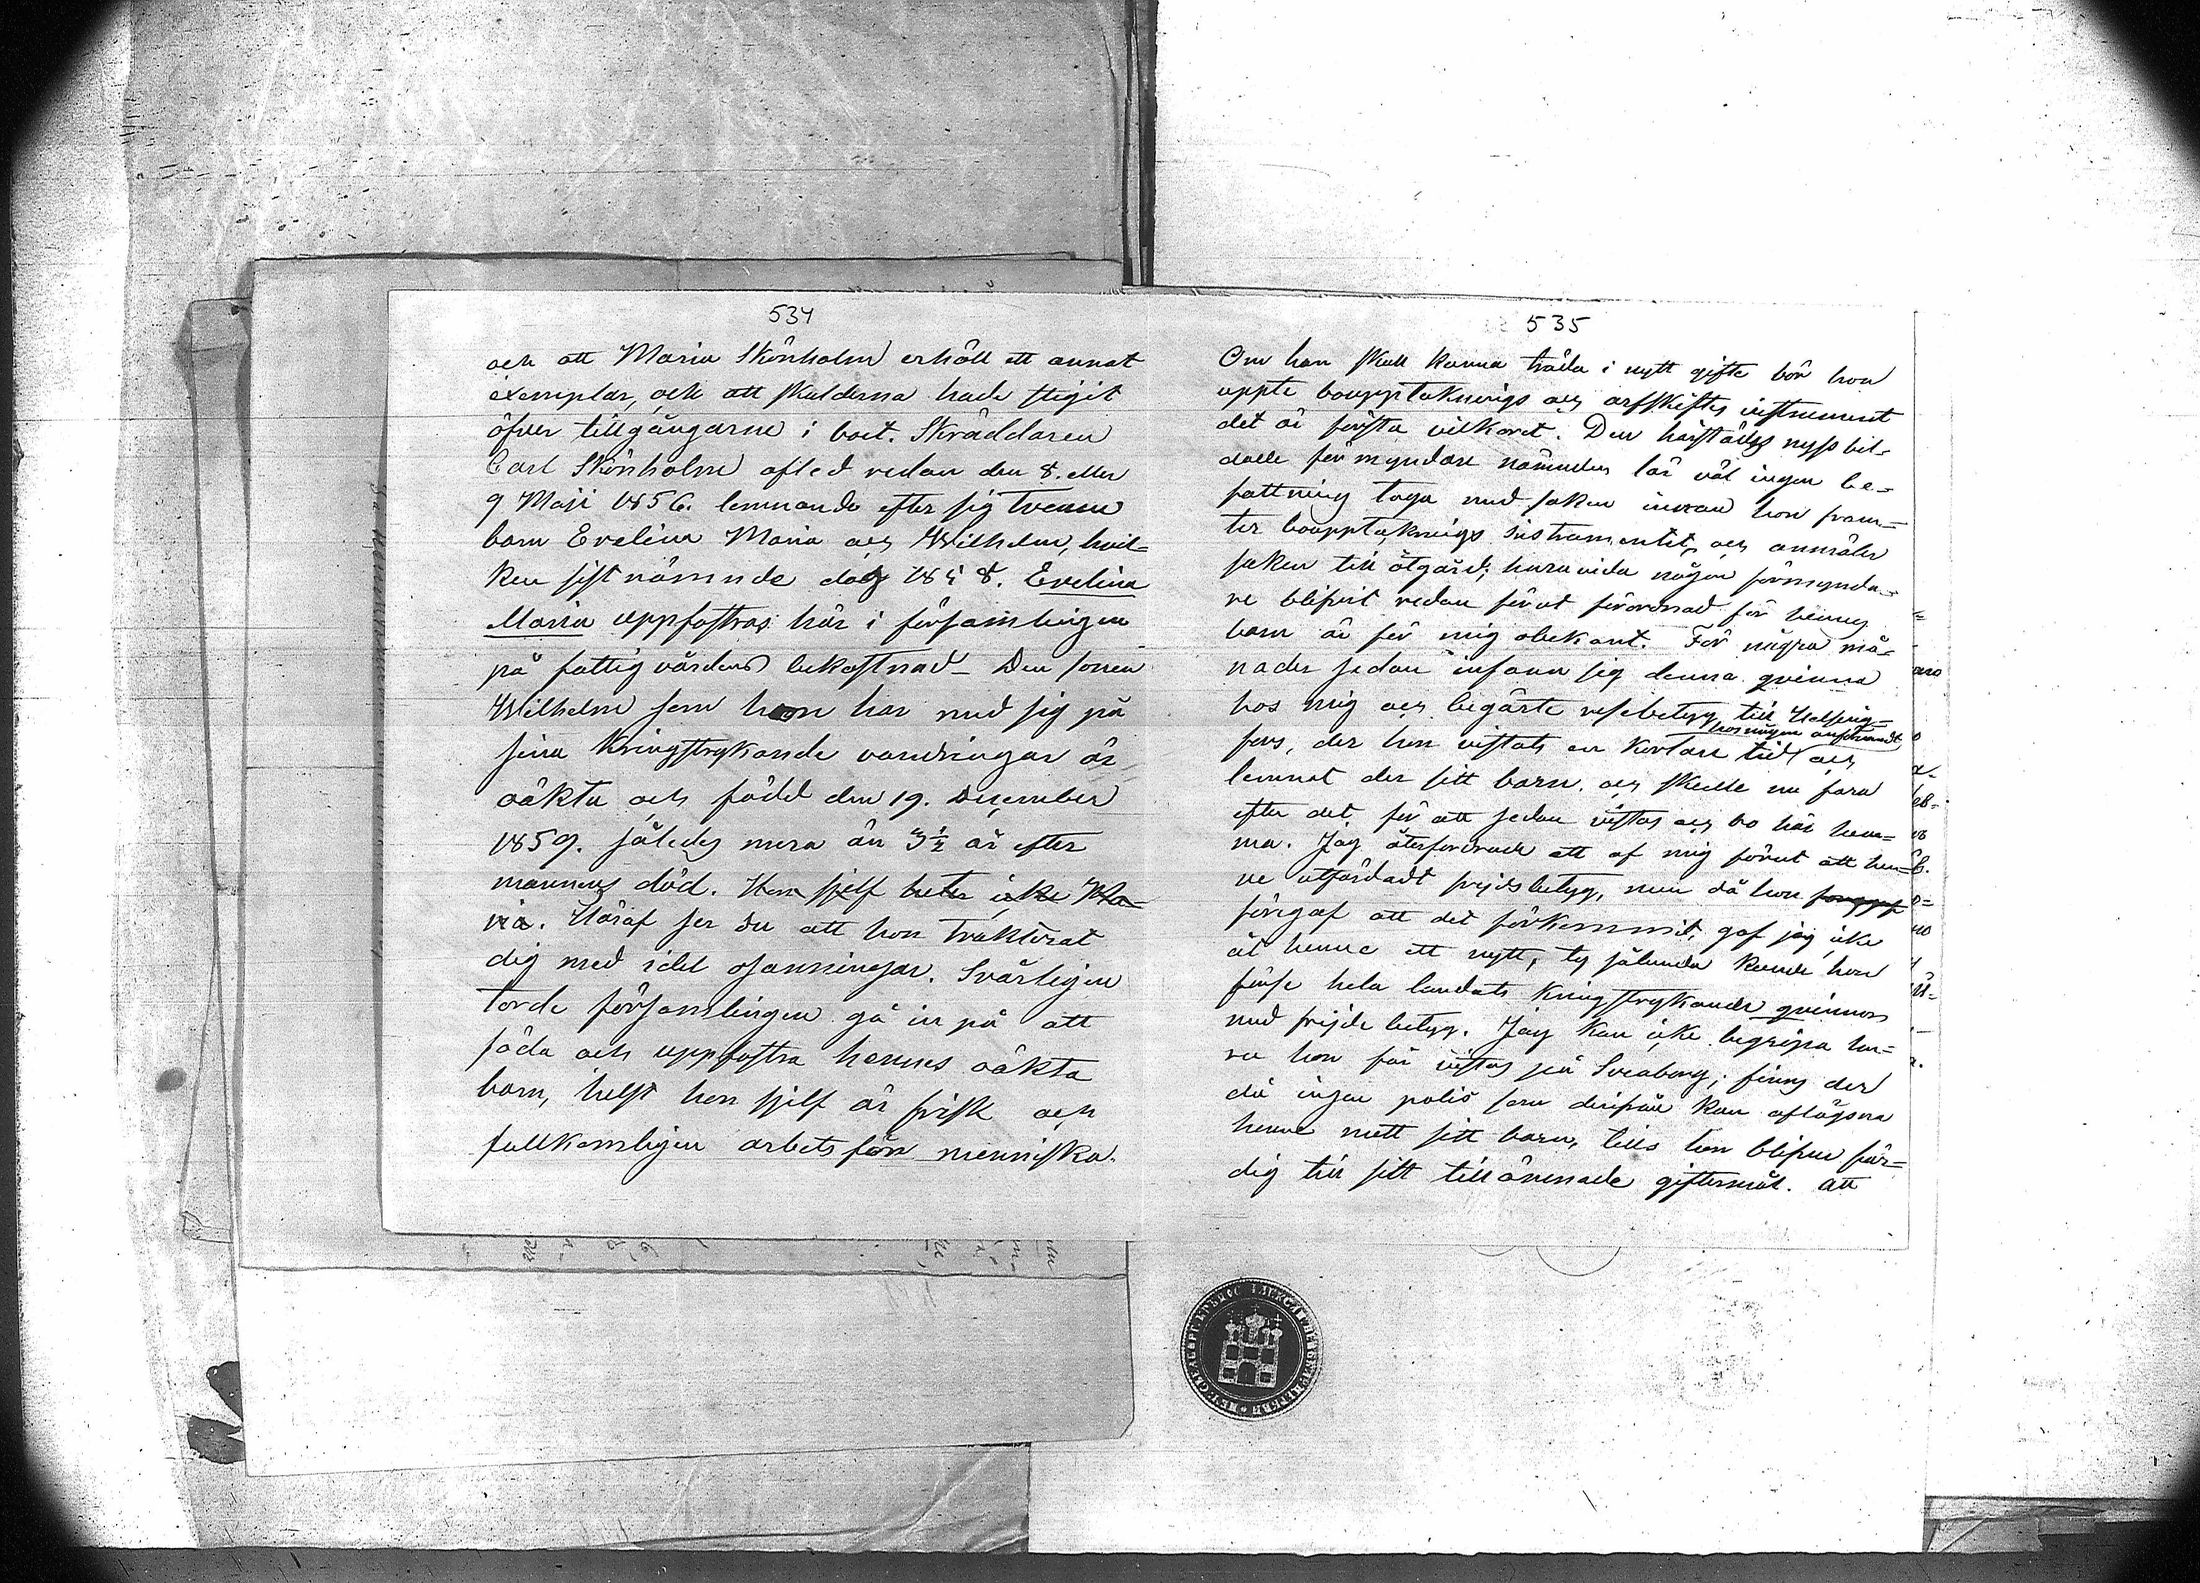 534
och att Maria Skönholm erhöll ett annat
exemplar, och att skulderna hade stigit
öfver tillgångarne i boet. Skräddaren
Carl Skönholm afled redan den 8. eller
9 Maji 1856. lemnande efter sig tvenne
barn Evelina Maria och Wilhelm, hvil-
ken sistnämnde dog 1858. Evelina
Maria uppfostras här i församlingen
på fattigvårdens bekostnad – Den sonen
Wilhelm som hon har med sig på
sina kringstrykande vandringar är
oäkta och född den 19. December
1859. således mera än 3½ år efter
mannens död. Hon sjelf heter icke Ma-
ria. Häraf ser du att hon trakterat
dig med idel osanningar. Svårligen
torde församlingen gå in på att
föda och uppfostra hennes oäkta
barn, helst hon sjelf är frisk och
fullkomligen arbetsför menniska.
535
Om hon skall kunna träda i nytt gifte bör hon
uppte bouppteknings och arfskiftes instrument
det är första vilkoret. Den härstädes nyss bil-
dade förmyndare nämnden lär väl ingen be-
fattning taga med saken innan hon fram-
ter bouppteknings instrumentet, och anmäler
saken till åtgärd; huruvida någon förmynda-
re blifvit redan förut förordnad för hennes
barn är för mig obekant. För några må-
nader sedan infann sig denna qvinna
hos mig och begärte resebetyg till Helsing-
hos någon anförvandt
fors, der hon vistats en kortare tid och
lemnat der sitt barn, och skulle nu fara
efter det för att sedan vistas och bo här hem-
ma. Jag återfordrade ett af mig förut åt hen-
ne utfärdadt prestbetyg, men då hon
föregaf att det förkommit, gaf jag icke
åt henne ett nytt, ty sålunda kunde hon
förse hela landets kringstrykande qvinnor
med prestbetyg. Jag kan icke begripa hu-
ru hon får vistas på Sveaborg; finns der
då ingen polis som derifrån kan aflägsna
henne mett sitt barn, tills hon blifver fär-
dig till sitt tillärnade giftermål. Att